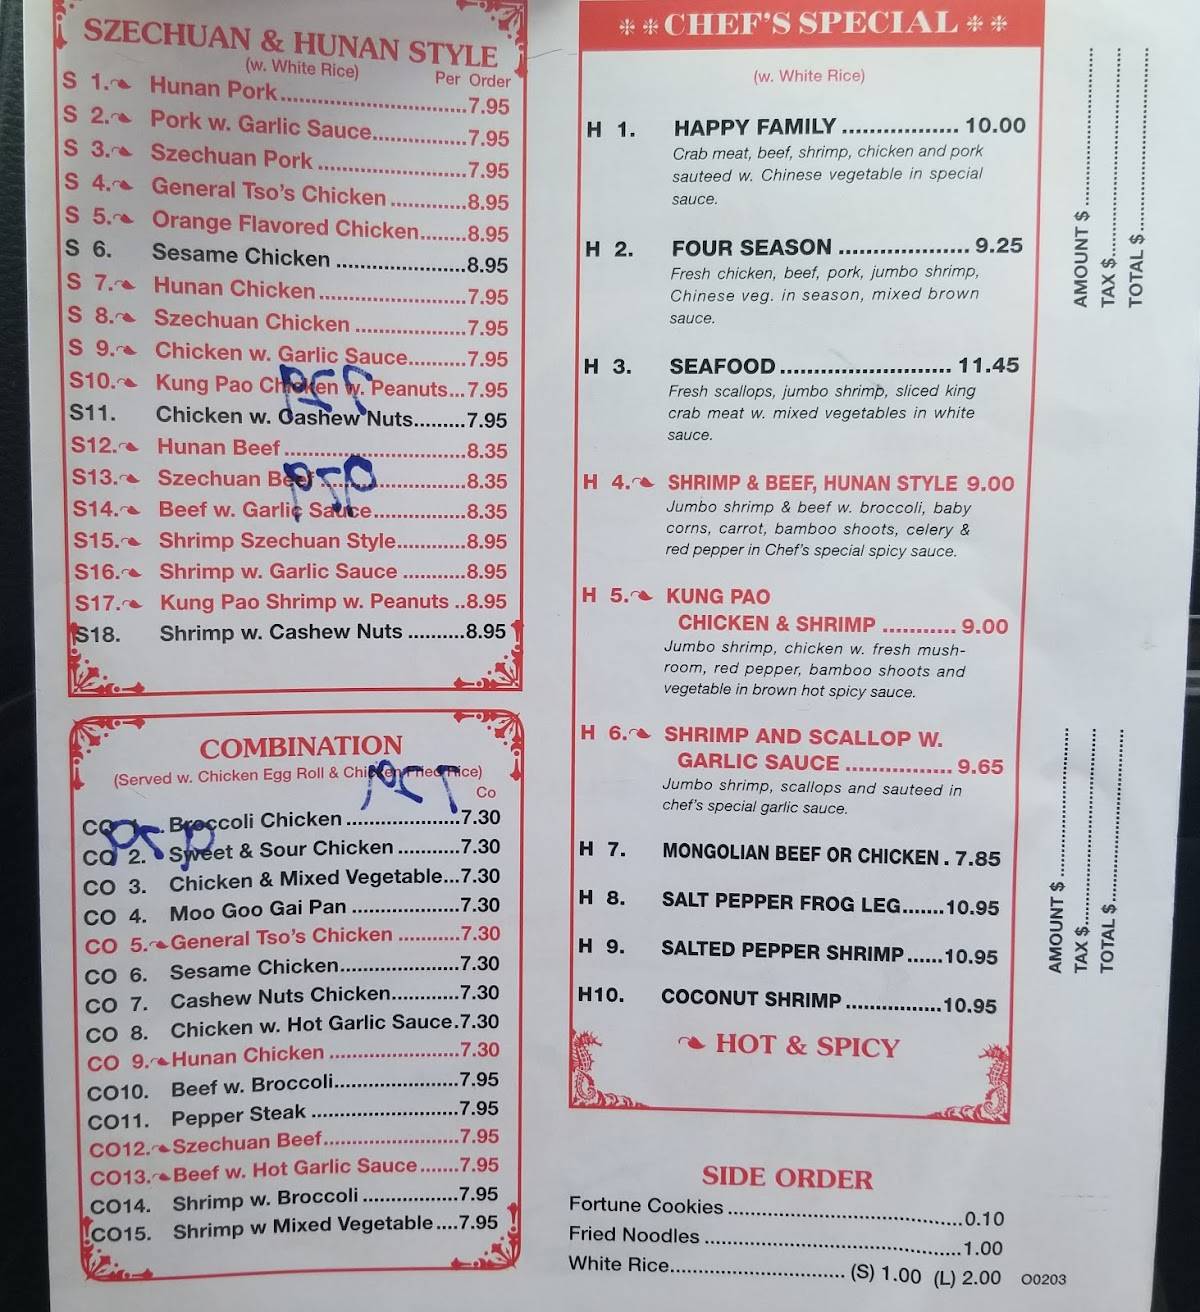 SZECHUAN & HUNAN STYLE
(w. White Rice)
Per Order
S 1. Hunan Pork..............................7.95
S 2. Pork w. Garlic Sauce...............7.95
S 3. Szechuan Pork ........................7.95
S 4. General Tso's Chicken ............8.95
S 5. Orange Flavored Chicken........8.95
S 6. Sesame Chicken .....................8.95
S 7. Hunan Chicken........................7.95
S 8. Szechuan Chicken ..................7.95
S 9. Chicken w. Garlic Sauce.........7.95
S10. Kung Pao Chicken w. Peanuts...7.95
S11. Chicken w. Cashew Nuts.........7.95
S12. Hunan Beef..............................8.35
S13. Szechuan Beef ........................8.35
S14. Beef w. Garlic Sauce...............8.35
S15. Shrimp Szechuan Style...........8.95
S16. Shrimp w. Garlic Sauce ..........8.95
S17. Kung Pao Shrimp w. Peanuts ..8.95
S18. Shrimp w. Cashew Nuts .........8.95
COMBINATION
(Served w. Chicken Egg Roll & Chicken Fried Rice)
Co
CO 1. Broccoli Chicken ...................7.30
CO 2. Sweet & Sour Chicken ..........7.30
CO 3. Chicken & Mixed Vegetable...7.30
CO 4. Moo Goo Gai Pan ..................7.30
CO 5. General Tso's Chicken ..........7.30
CO 6. Sesame Chicken....................7.30
CO 7. Cashew Nuts Chicken...........7.30
CO 8. Chicken w. Hot Garlic Sauce.7.30
CO 9. Hunan Chicken .....................7.30
CO10. Beef w. Broccoli.....................7.95
CO11. Pepper Steak ........................7.95
CO12. Szechuan Beef......................7.95
CO13. Beef w. Hot Garlic Sauce.......7.95
CO14. Shrimp w. Broccoli ................7.95
CO15. Shrimp w Mixed Vegetable....7.95
CHEF'S SPECIAL
(w. White Rice)
H 1. HAPPY FAMILY ................. 10.00
Crab meat, beef, shrimp, chicken and pork
sauteed w. Chinese vegetable in special
sauce.
H 2. FOUR SEASON ................... 9.25
Fresh chicken, beef, pork, jumbo shrimp,
Chinese veg. in season, mixed brown
sauce.
H 3. SEAFOOD ......................... 11.45
Fresh scallops, jumbo shrimp, sliced king
crab meat w. mixed vegetables in white
sauce.
H 4. SHRIMP & BEEF, HUNAN STYLE 9.00
Jumbo shrimp & beef w. broccoli, baby
corns, carrot, bamboo shoots, celery &
red pepper in Chef's special spicy sauce.
H 5. KUNG PAO
CHICKEN & SHRIMP ........... 9.00
Jumbo shrimp, chicken w. fresh mush-
room, red pepper, bamboo shoots and
vegetable in brown hot spicy sauce.
H 6. SHRIMP AND SCALLOP W.
GARLIC SAUCE ................ 9.65
Jumbo shrimp, scallops and sauteed in
chef's special garlic sauce.
H 7. MONGOLIAN BEEF OR CHICKEN . 7.85
H 8. SALT PEPPER FROG LEG.......10.95
H 9. SALTED PEPPER SHRIMP ......10.95
H10. COCONUT SHRIMP ................10.95
HOT & SPICY
SIDE ORDER
Fortune Cookies ......................................0.10
Fried Noodles ..........................................1.00
White Rice.............................. (S) 1.00 (L) 2.00
O0203
AMOUNT $
TAX $
TOTAL $
AMOUNT $
TAX $
TOTAL $